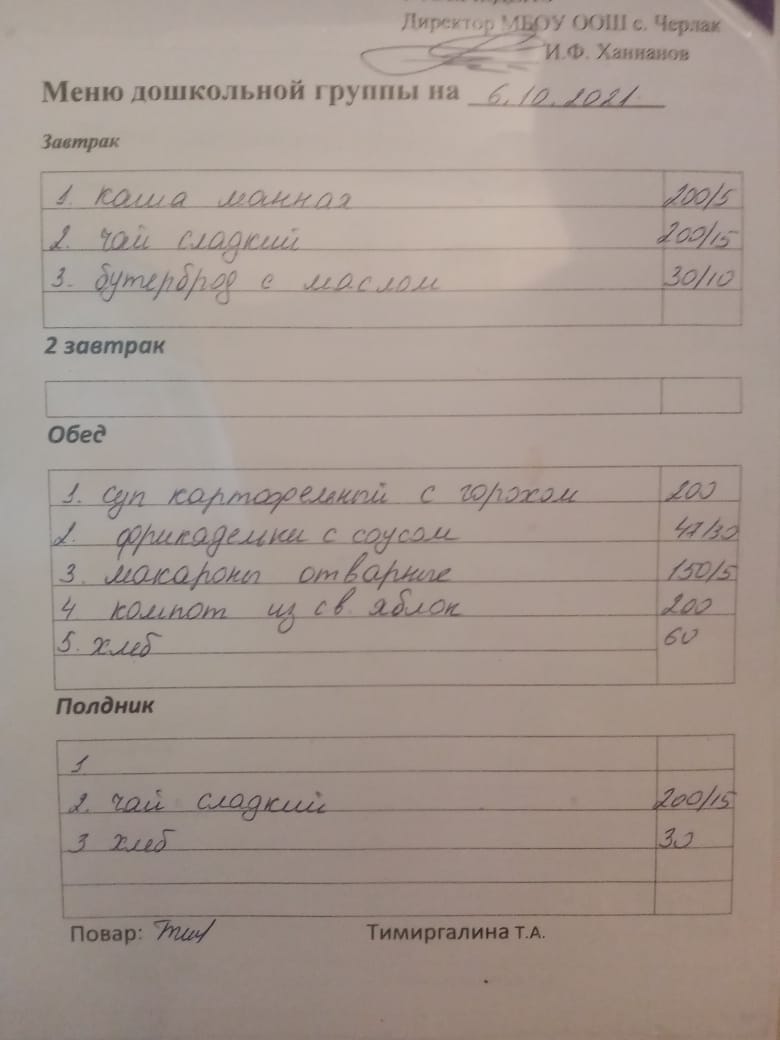 Директор МБОУ ООШ с. Черлак
И.Ф. Ханнанов
Меню дошкольной группы на 6.10.2021
Завтрак
1. каша манная 200/5
2. чай сладкий 200/15
3. бутерброд с маслом 30/10
2 завтрак
Обед
1. суп картофельный с горохом 200
2. фрикадельки с соусом 47/30
3. макароны отварные 150/5
4 компот из св. яблок 200
5. хлеб 60
Полдник
1
2. чай сладкий 200/15
3 хлеб 30
Повар: Тимиргалина Т.А.